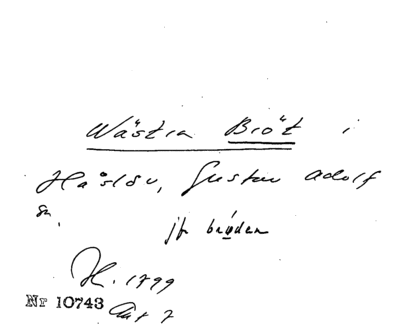 Wästra Bröt i
Håslöv, Gustav Adolf
sn.
jfr bröden
H. 1799
Nr 10743 Akt 7